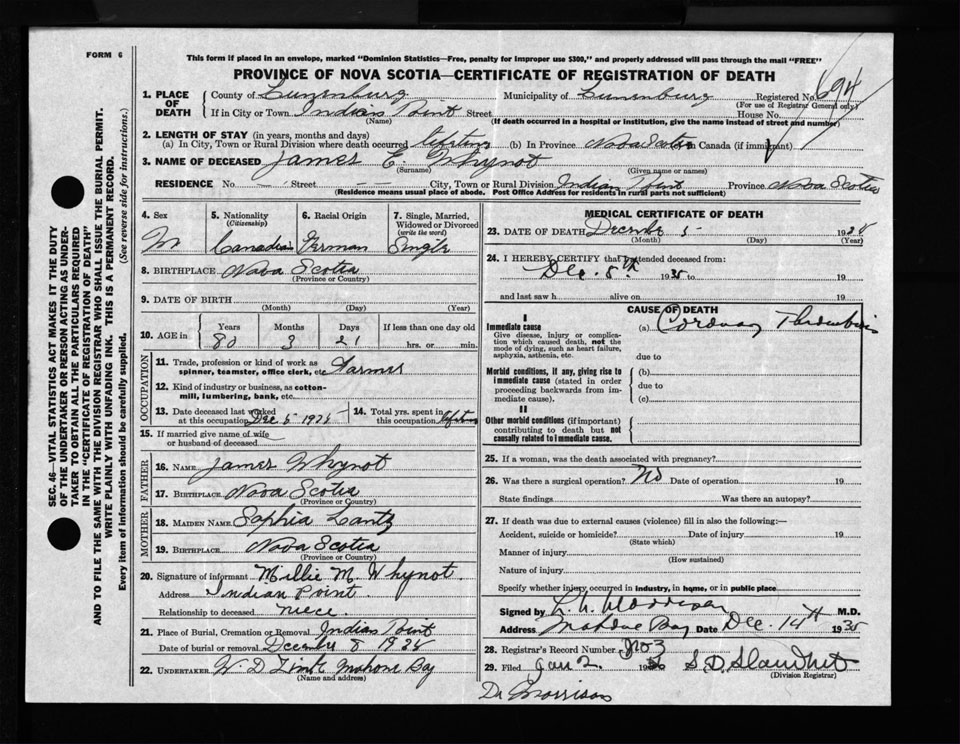 FORM 6
This form if placed in an envelope, marked "Dominion Statistics—Free, penalty for improper use $300," and properly addressed will pass through the mail "FREE"
PROVINCE OF NOVA SCOTIA—CERTIFICATE OF REGISTRATION OF DEATH
1. PLACE OF DEATH County of Lunenburg Municipality of Lunenburg Registered No. 694
(For use of Registrar General only)
If in City or Town Indian Point Street House No.
(Name) (If death occurred in a hospital or institution, give the name instead of street and number)
2. LENGTH OF STAY (in years, months and days)
(a) In City, Town or Rural Division where death occurred lifetime (b) In Province Nova Scotia in Canada (if immigrant)
3. NAME OF DECEASED James E. Whynot
(Surname) (Given name or names)
RESIDENCE No — Street — City, Town or Rural Division Indian Point Province Nova Scotia
(Residence means usual place of abode. Post Office Address for residents in rural parts not sufficient)
4. Sex M
5. Nationality (Citizenship) Canadian
6. Racial Origin German
7. Single, Married, Widowed or Divorced (write the word) Single
8. BIRTHPLACE Nova Scotia
(Province or Country)
9. DATE OF BIRTH
(Month) (Day) (Year)
10. AGE in Years 80 Months 3 Days 21 If less than one day old hrs. or min.
OCCUPATION
11. Trade, profession or kind of work as spinner, teamster, office clerk, etc. Farmer
12. Kind of industry or business, as cotton-mill, lumbering, bank, etc.
13. Date deceased last worked at this occupation Dec 5
14. Total yrs. spent in this occupation lifetime
15. If married give name of wife or husband of deceased
FATHER
16. NAME James Whynot
17. BIRTHPLACE Nova Scotia
(Province or Country)
MOTHER
18. MAIDEN NAME Sophia Lantz
19. BIRTHPLACE Nova Scotia
(Province or Country)
20. Signature of informant Millie M. Whynot.
Address Indian Point.
Relationship to deceased niece.
21. Place of Burial, Cremation or Removal Indian Point
Date of burial or removal December 8
22. UNDERTAKER W. D. Mahone Bay
(Name and address)
MEDICAL CERTIFICATE OF DEATH
23. DATE OF DEATH December 5
(Month) (Day) (Year)
24. I HEREBY CERTIFY that I attended deceased from:
Dec. 5th 1935 to 19
and last saw h alive on 19
CAUSE OF DEATH
I
Immediate cause (a) Coronary Thrombosis
Give disease, injury or complication which caused death, not the mode of dying, such as heart failure, asphyxia, asthenia, etc.
due to
Morbid conditions, if any, giving rise to immediate cause (stated in order proceeding backwards from immediate cause).
(b)
due to
(c)
II
Other morbid conditions (if important) contributing to death but not causally related to immediate cause.
25. If a woman, was the death associated with pregnancy?
26. Was there a surgical operation? No Date of operation 19
State findings Was there an autopsy?
27. If death was due to external causes (violence) fill in also the following:—
Accident, suicide or homicide? Date of injury 19
(State which)
Manner of injury
(How sustained)
Nature of injury
Specify whether injury occurred in industry, in home, or in public place
Signed by Morrison M.D.
Address Mahone Bay Date Dec. 14th 1935
28. Registrar's Record Number 803
29. Filed Jan 2. 19 S. D.
(Division Registrar)
Dr Morrison
SEC. 46—VITAL STATISTICS ACT MAKES IT THE DUTY
OF THE UNDERTAKER OR PERSON ACTING AS UNDER-
TAKER TO OBTAIN ALL THE PARTICULARS REQUIRED
IN THE "CERTIFICATE OF REGISTRATION OF DEATH"
AND TO FILE THE SAME WITH THE DIVISION REGISTRAR WHO SHALL ISSUE THE BURIAL PERMIT.
WRITE PLAINLY WITH UNFADING INK. THIS IS A PERMANENT RECORD.
Every item of information should be carefully supplied. (See reverse side for instructions.)